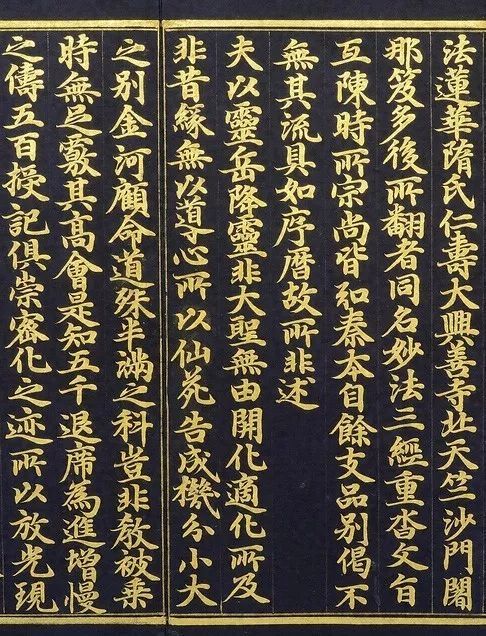 法蓮華隋氏仁壽大興善寺北天竺沙門闍
那笈多後所翻者同名妙法三經重沓文旨
互陳時所宗尚皆弘秦本自餘支品別偈不
無其流具如序曆故所非述
夫以靈岳降靈非大聖無由開化適化所及
非昔緣無以導心所以仙苑告成機分小大
之別金河顧命道殊半滿之科豈非教被乗
時無足覈其高會是知五千退席為進增慢
之儔五百授記俱崇密化之迹所以放光現